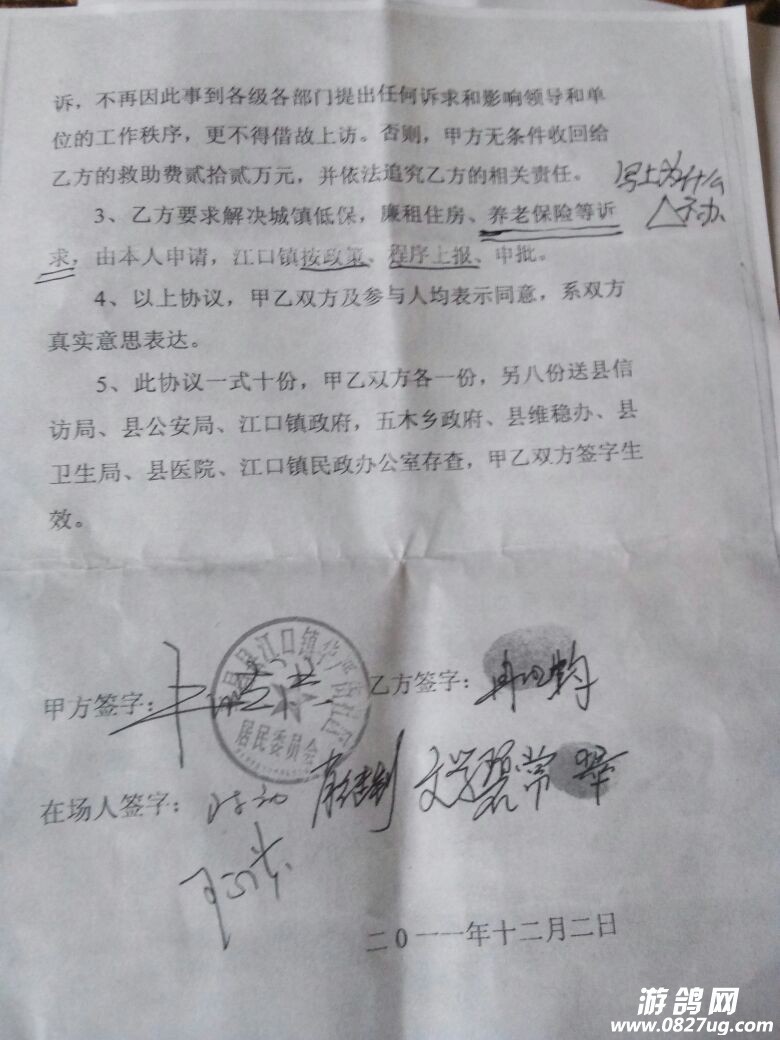 诉，不再因此事到各级各部门提出任何诉求和影响领导和单
位的工作秩序，更不得借故上访。否则，甲方无条件收回给
乙方的救助费贰拾贰万元，并依法追究乙方的相关责任。
写上为什么
不办
3、乙方要求解决城镇低保，廉租住房、养老保险等诉
求，由本人申请，江口镇按政策、程序上报、申批。
4、以上协议，甲乙双方及参与人均表示同意，系双方
真实意思表达。
5、此协议一式十份，甲乙双方各一份，另八份送县信
访局、县公安局、江口镇政府，五木乡政府、县维稳办、县
卫生局、县医院、江口镇民政办公室存查，甲乙双方签字生
效。
县江口镇华
居民委员会
甲方签字：
乙方签字：
在场人签字：
二0一一年十二月二日
游鸽网
www.0827ug.com